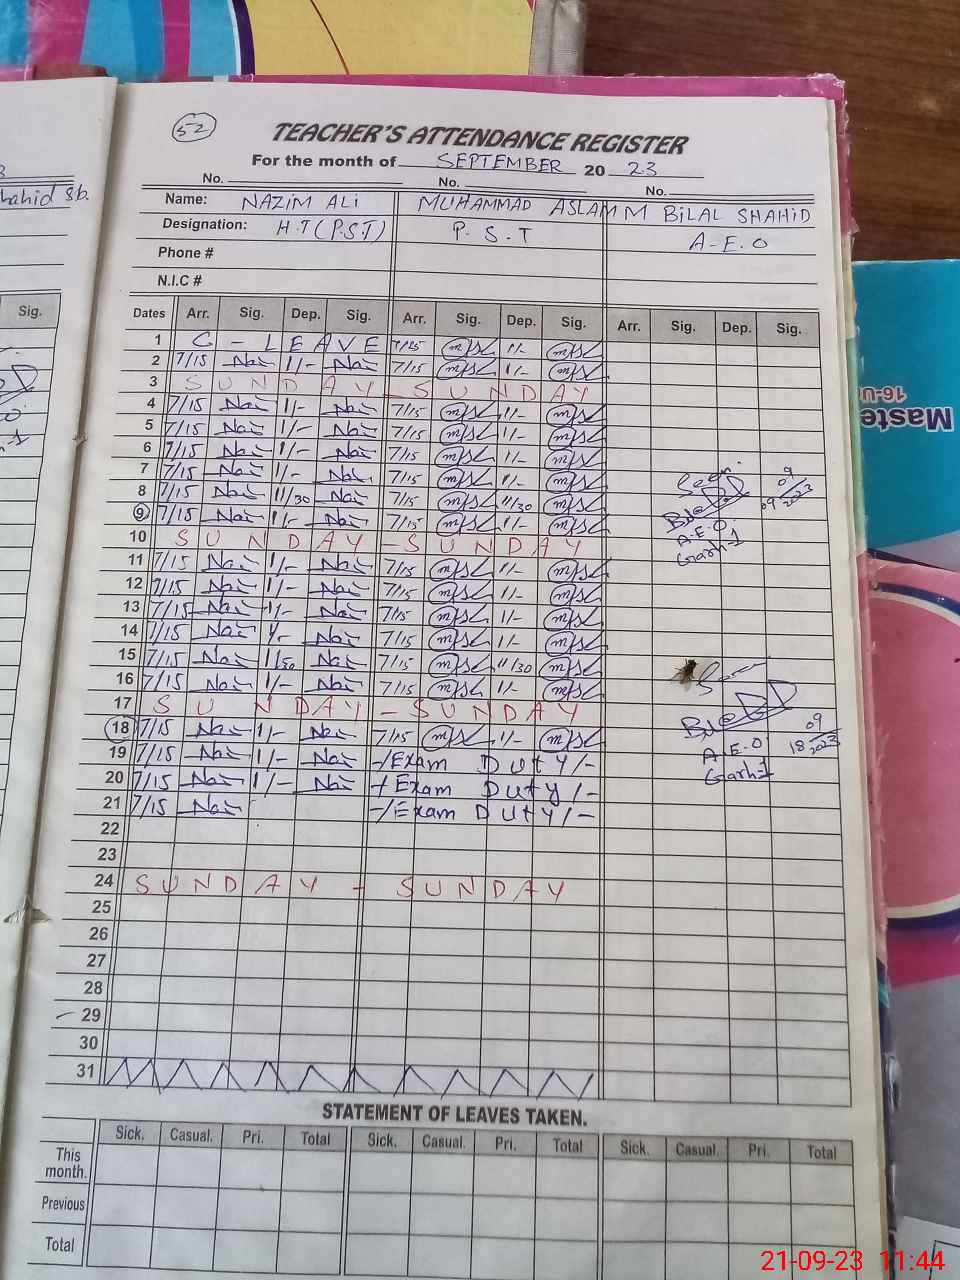 52
TEACHER'S ATTENDANCE REGISTER
For the month of SEPTEMBER 20 23
No. No. No.
Name: NAZIM ALI MUHAMMAD ASLAM M BILAL SHAHID
Designation: H.T (P.S.T) P. S. T A.E.O
Phone #
N.I.C #
Dates Arr. Sig. Dep. Sig. Arr. Sig. Dep. Sig. Arr. Sig. Dep. Sig.
1 C - LEAVE 7/15 1/-
2 7/15 1/- 7/15 1/-
3 SUNDAY - SUNDAY
4 7/15 1/- 7/15 1/-
5 7/15 1/- 7/15 1/-
6 7/15 1/- 7/15 1/-
7 7/15 1/- 7/15 1/-
8 7/15 11/30 7/15 11/30
9 7/15 1/- 7/15 1/-
10 SUNDAY - SUNDAY
11 7/15 1/- 7/15 1/-
12 7/15 1/- 7/15 1/-
13 7/15 1/- 7/15 1/-
14 7/15 1/- 7/15 1/-
15 7/15 11/30 7/15 11/30
16 7/15 1/- 7/15 1/-
17 SUNDAY - SUNDAY
18 7/15 1/- 7/15 1/-
19 7/15 1/- -/Exam Duty/-
20 7/15 1/- -/Exam Duty/-
21 7/15 -/Exam Duty/-
22
23
24 SUNDAY - SUNDAY
25
26
27
28
29
30
31
Seen
09
09/2023
A.E.O
Garh-1
09
18/2023
A.E.O
Garh-1
STATEMENT OF LEAVES TAKEN.
Sick. Casual. Pri. Total Sick. Casual. Pri. Total Sick. Casual. Pri. Total
This month.
Previous
Total
hahid Sb.
Sig.
Maste
16-U
21-09-23 11:44